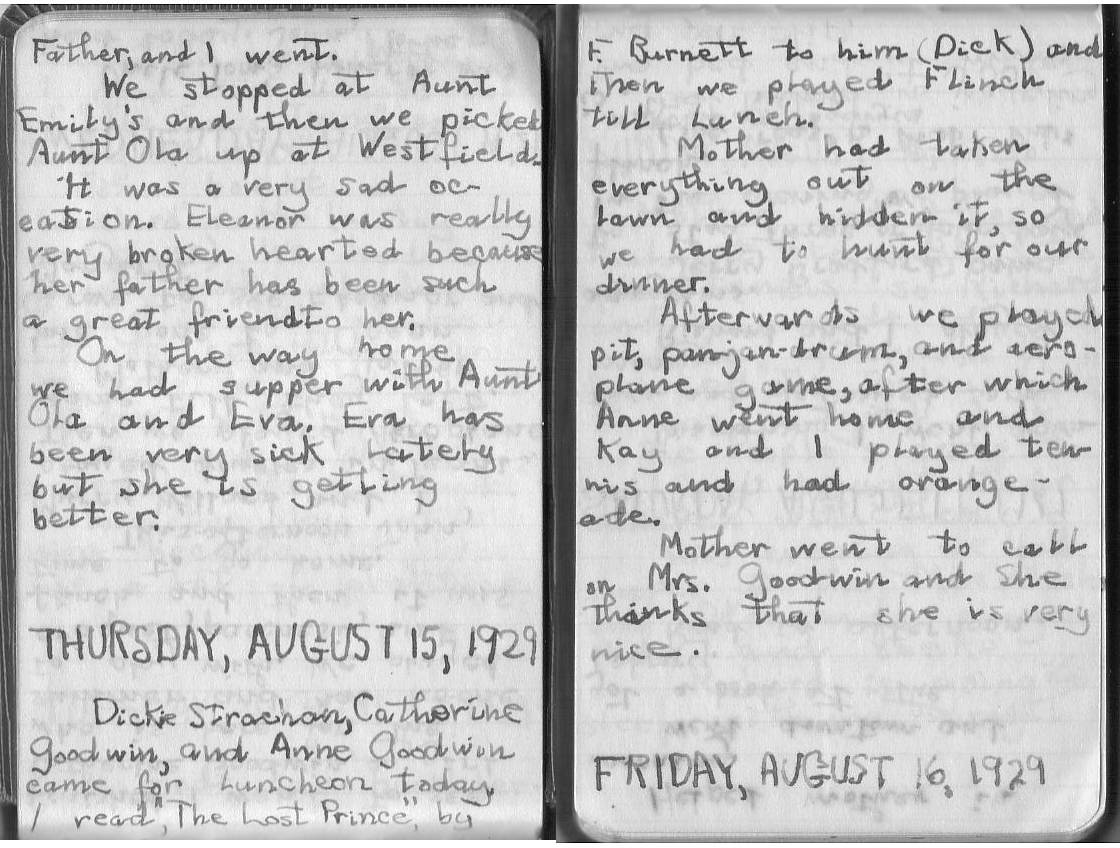 Father, and I went.
We stopped at Aunt
Emily's and then we picked
Aunt Ola up at Westfield.
It was a very sad oc-
casion. Eleanor was really
very broken hearted because
her father has been such
a great friend to her.
On the way home
we had supper with Aunt
Ola and Eva. Eva has
been very sick lately
but she is getting
better.
THURSDAY, AUGUST 15, 1929
Dickie Strachan, Catherine
Goodwin, and Anne Goodwin
came for Luncheon today.
I read "The Lost Prince", by
F. Burnett to him (Dick) and
then we played Flinch
till Lunch.
Mother had taken
everything out on the
lawn and hidden it, so
we had to hunt for our
dinner.
Afterwards we played
pit, pan-jan-drum, and aero-
plane game, after which
Anne went home and
Kay and I played ten-
nis and had orange-
ade.
Mother went to call
on Mrs. Goodwin and she
thinks that she is very
nice.
FRIDAY, AUGUST 16, 1929